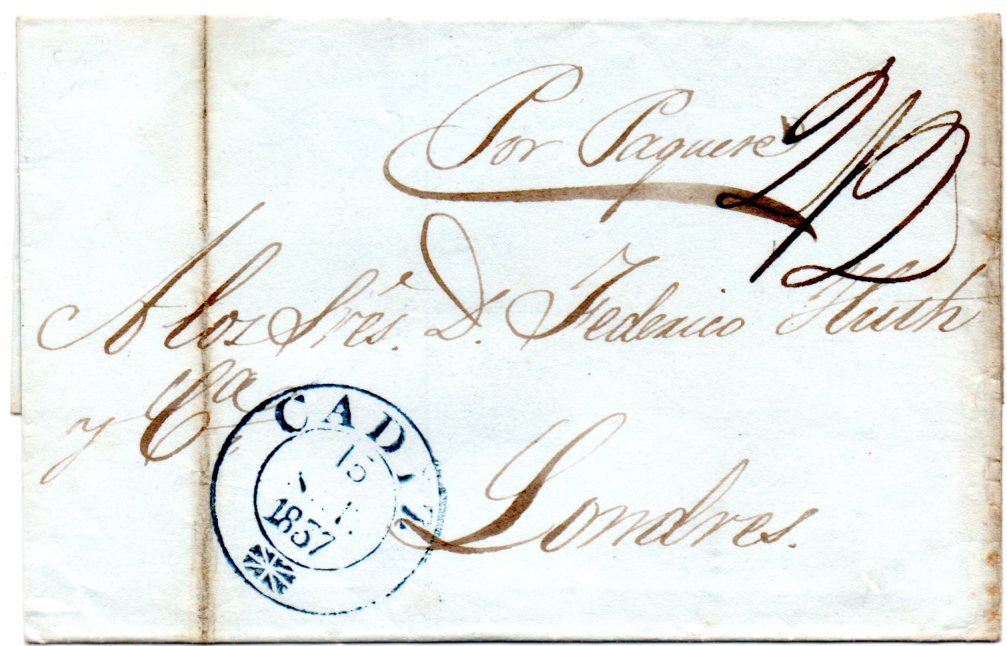 Por Paquete
2/2
A los Sres. D. Federico Huth
y Ca.
Londres.
CADIZ
15
1837